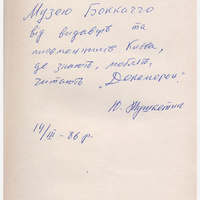 Музею Боккаччо
від видавців та
письменників Києва,
де знають, люблять,
читають "Декамерон".
Ю. Мушкетик
14/III - 86 р.